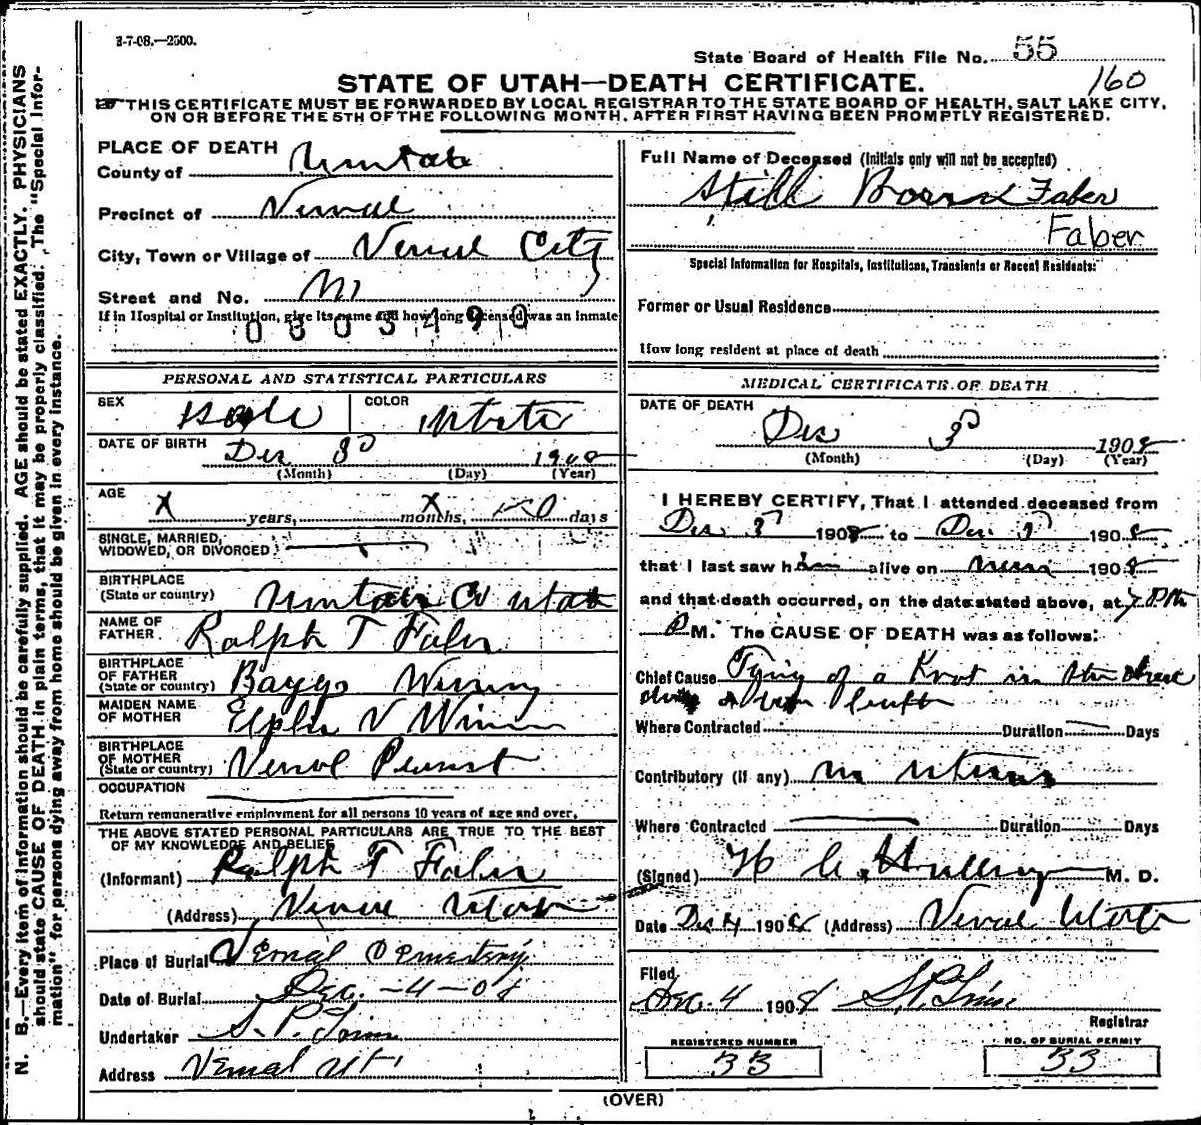 3-7-08.—2500.
State Board of Health File No. 55
160
STATE OF UTAH—DEATH CERTIFICATE.
THIS CERTIFICATE MUST BE FORWARDED BY LOCAL REGISTRAR TO THE STATE BOARD OF HEALTH, SALT LAKE CITY,
ON OR BEFORE THE 5TH OF THE FOLLOWING MONTH, AFTER FIRST HAVING BEEN PROMPTLY REGISTERED.
N. B.—Every item of information should be carefully supplied. AGE should be stated EXACTLY. PHYSICIANS
should state CAUSE OF DEATH in plain terms, that it may be properly classified. The "Special Infor-
mation" for persons dying away from home should be given in every instance.
PLACE OF DEATH
County of Uintah
Precinct of Vernal
City, Town or Village of Vernal City
Street and No.
If in Hospital or Institution, give its name and how long deceased was an inmate
0303490
PERSONAL AND STATISTICAL PARTICULARS
SEX Male COLOR White
DATE OF BIRTH Dec 3 1908
(Month) (Day) (Year)
AGE x years, x months, 0 days
SINGLE, MARRIED,
WIDOWED, OR DIVORCED
BIRTHPLACE
(State or country) Uintah Co Utah
NAME OF
FATHER. Ralph T Faber
BIRTHPLACE
OF FATHER
(State or country) Baggs
MAIDEN NAME
OF MOTHER
BIRTHPLACE
OF MOTHER
(State or country) Vernal
OCCUPATION
Return remunerative employment for all persons 10 years of age and over.
THE ABOVE STATED PERSONAL PARTICULARS ARE TRUE TO THE BEST
OF MY KNOWLEDGE AND BELIEF
(Informant) Ralph T Faber
(Address) Vernal Utah
Place of Burial Vernal Cemetery
Date of Burial Dec. -4-08
Undertaker S. P.
Address Vernal Ut.
Full Name of Deceased (Initials only will not be accepted)
Still Born Faber
Faber
Special Information for Hospitals, Institutions, Transients or Recent Residents:
Former or Usual Residence
How long resident at place of death
MEDICAL CERTIFICATE OF DEATH
DATE OF DEATH
Dec 3 1908
(Month) (Day) (Year)
I HEREBY CERTIFY, That I attended deceased from
Dec 3 1908 to Dec. 3 1908
that I last saw him alive on 1908
and that death occurred, on the date stated above, at 7 P.M.
P M. The CAUSE OF DEATH was as follows:
Chief Cause Tying of a Knot in the
Where Contracted Duration Days
Contributory (if any) in uterus
Where Contracted Duration Days
(Signed) H C M. D.
Date Dec 4 1908 (Address) Vernal Utah
Filed
Dec. 4 1908 S. P.
Registrar
REGISTERED NUMBER
33
NO. OF BURIAL PERMIT
33
(OVER)